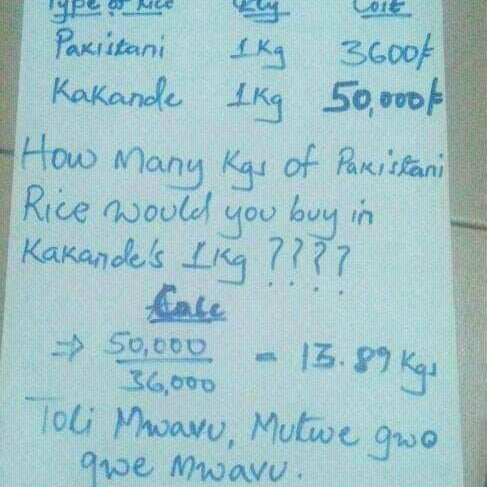 Type of Rice Qty Cost
Pakistani 1Kg 3600/=
Kakande 1Kg 50,000/=
How Many Kgs of Pakistani
Rice would you buy in
Kakande's 1Kg ????
Calc
⇒ 50,000
36,000
= 13.89 Kgs
Toli Mwavu, Mutwe gwo
gwe Mwavu.